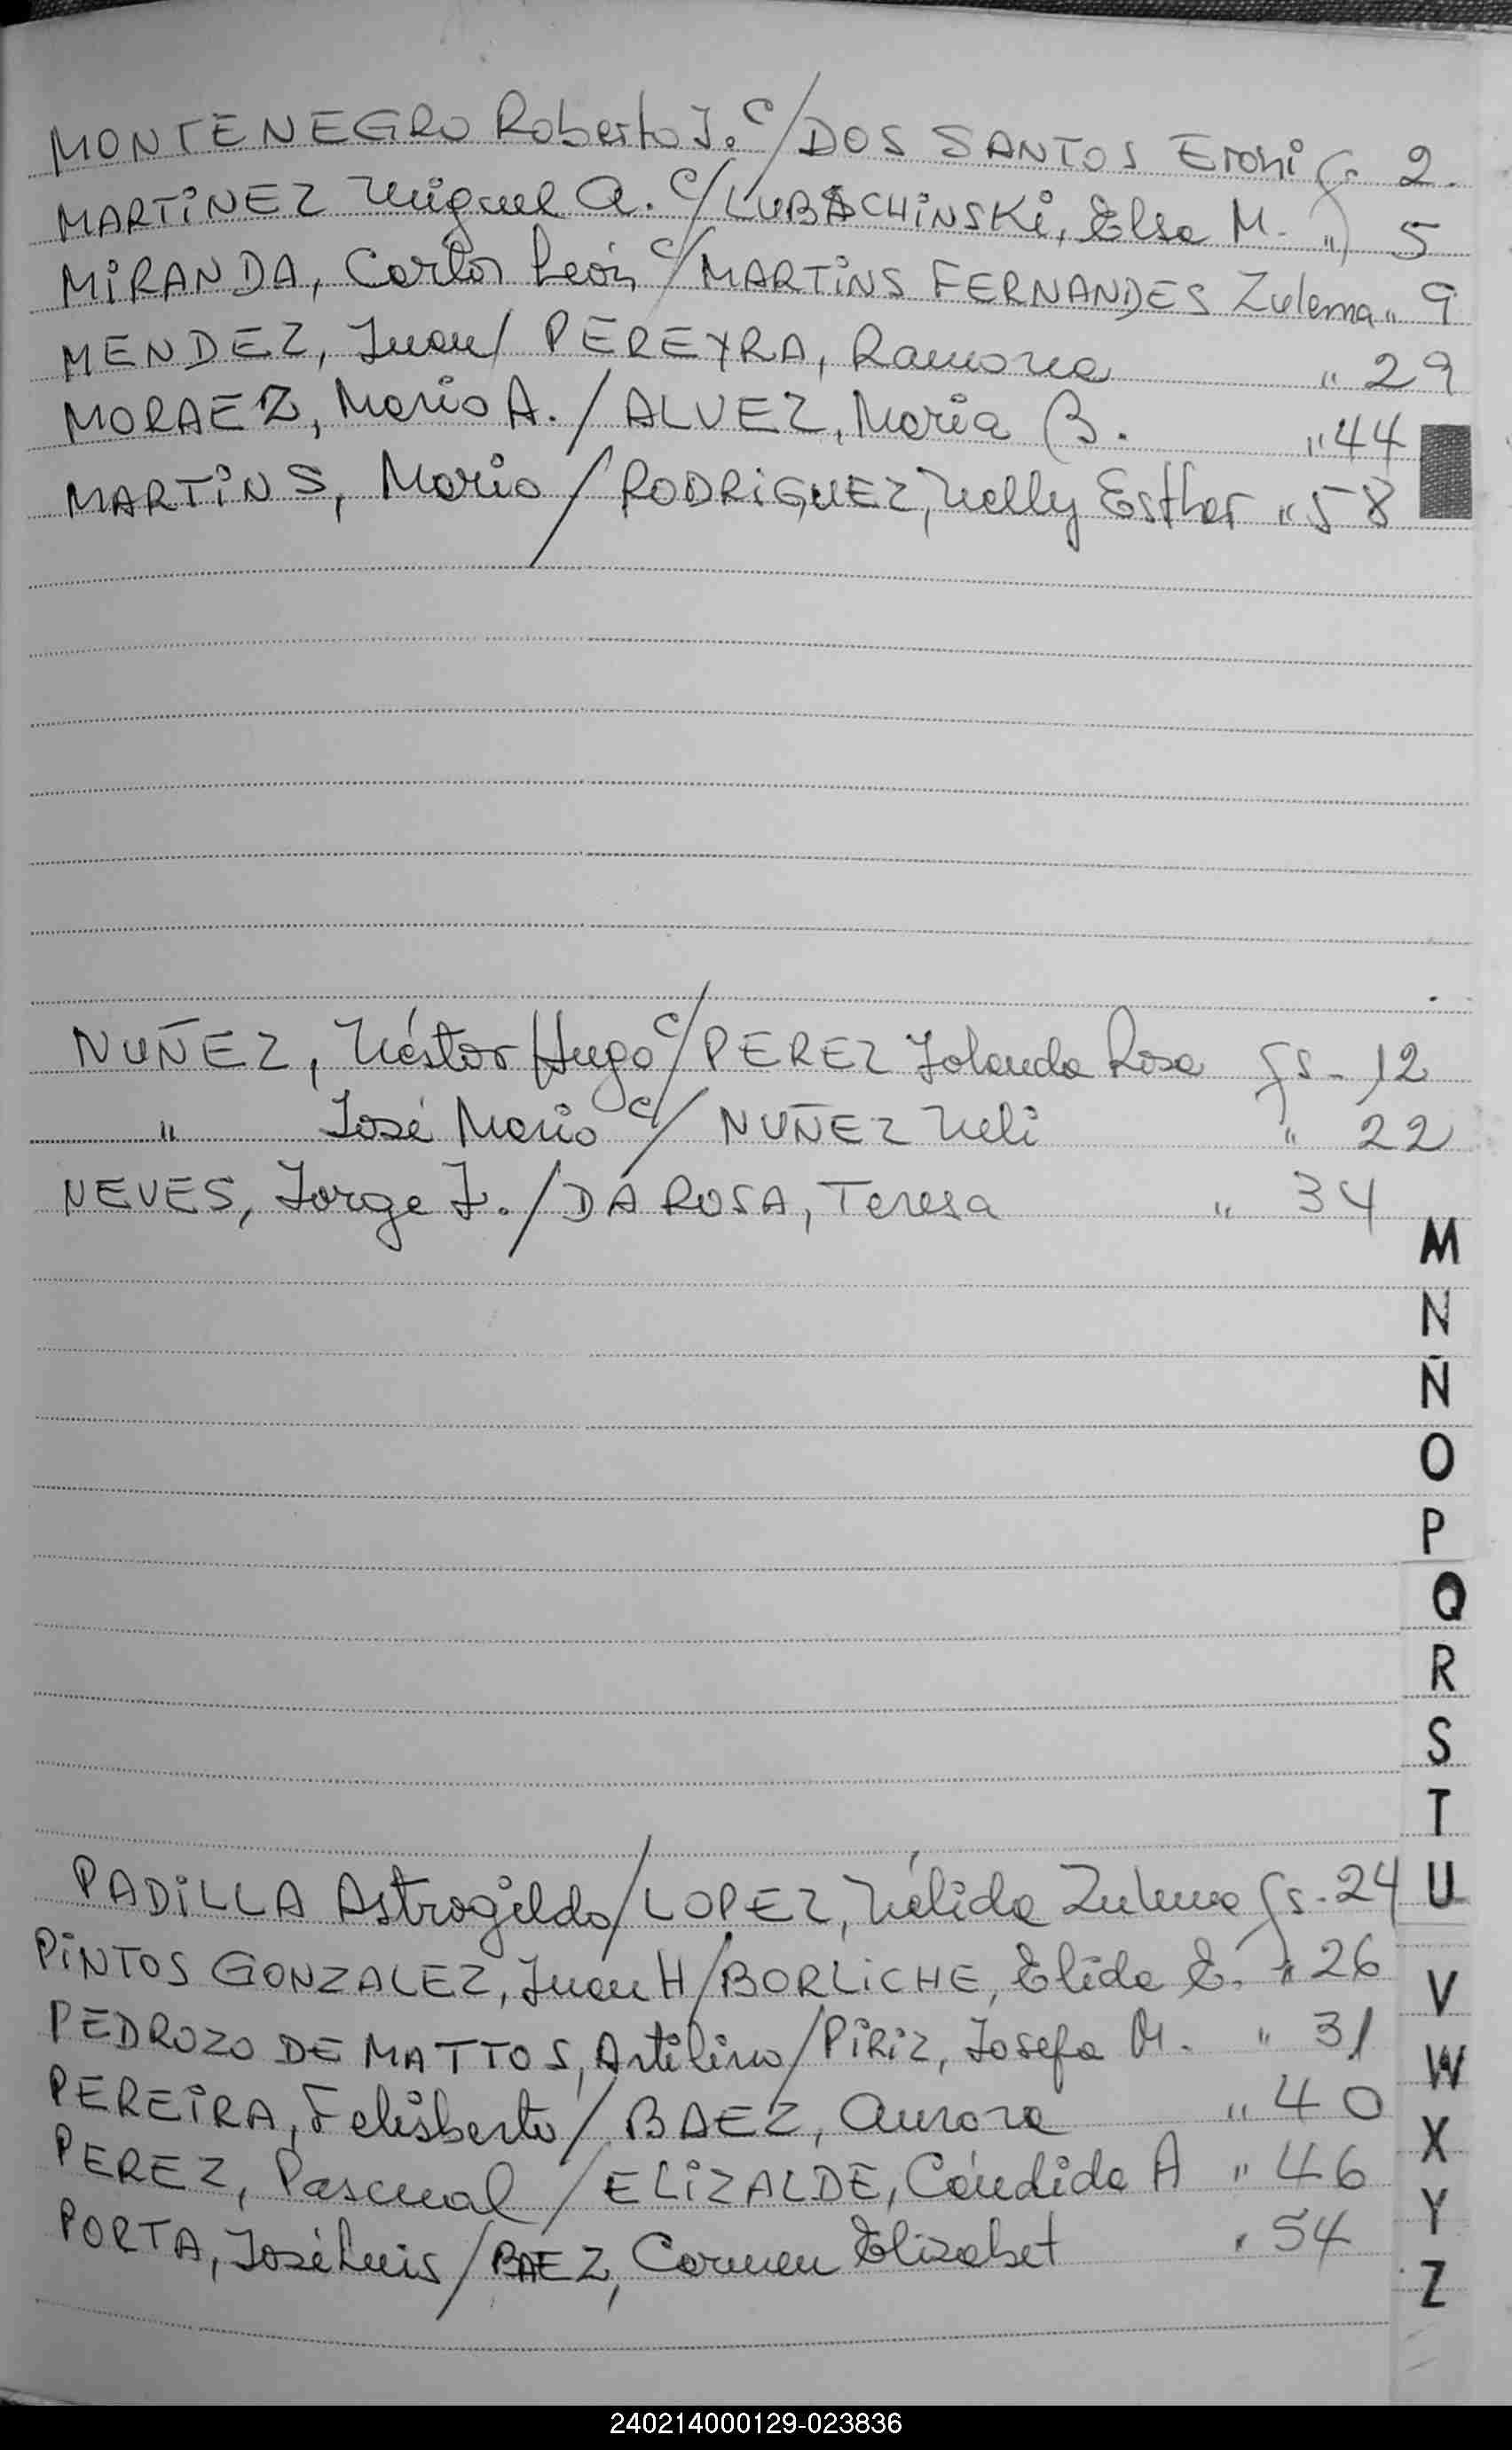 MONTENEGRO Roberto J. c/ DOS SANTOS Eroni fs 2.
MARTiNEZ Miguel A. c/ LUBASCHiNSKi, Elsa M. " 5
MiRANDA, Carlos León c/ MARTiNS FERNANDES Zulema " 9
MENDEZ, Juan / PEREYRA, Ramona " 29
MORAEZ, Mario A. / ALVEZ, Maria B. " 44
MARTiNS, Mario / RODRiGUEZ, Nelly Esther " 58
NUÑEZ, Néstor Hugo c/ PEREZ Jolanda Rosa fs - 12
" José Mario c/ NUÑEZ Neli " 22
NEVES, Jorge J. / DA ROSA, Teresa " 34
M
N
Ñ
O
P
Q
R
S
T
PADiLLA Astrogildo / LOPEZ, Nélida Zulema fs - 24
U
PiNTOS GONZALEZ, Juan H / BORLiCHE, Elida E. " 26
V
PEDROZO DE MATTOS, Artilino / PiRiZ, Josefa M. " 31
W
PEREiRA, Felisberto / BAEZ, Aurora " 40
X
PEREZ, Pascual / ELiZALDE, Cándida A " 46
Y
PORTA, José Luis / BAEZ, Carmen Elizabet " 54
Z
240214000129-023836